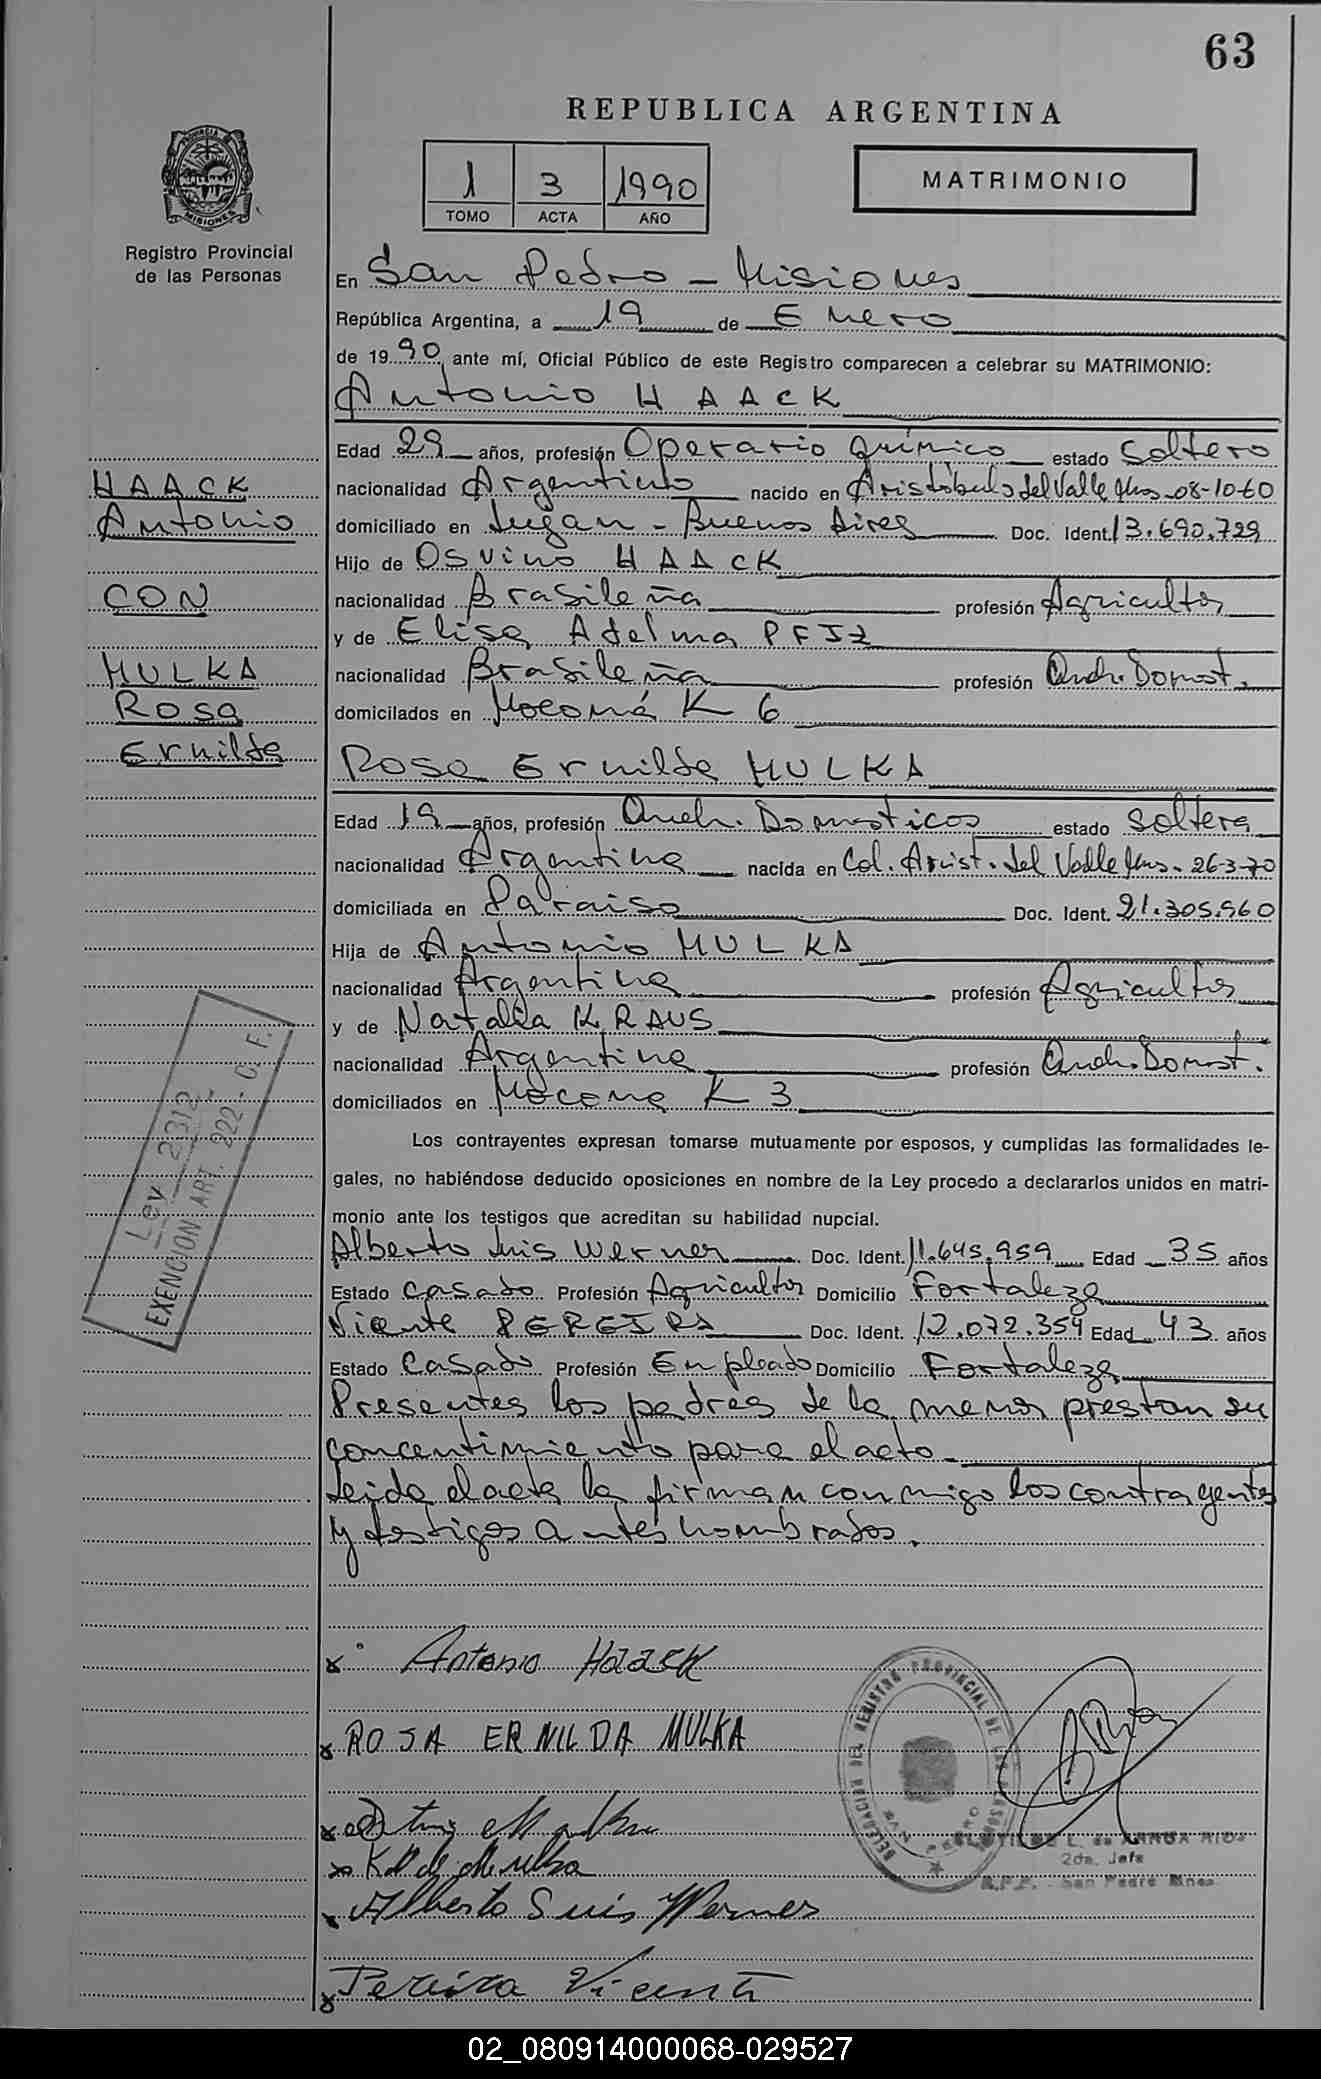 63
REPUBLICA ARGENTINA
1 3 1990
TOMO ACTA AÑO
MATRIMONIO
PROVINCIA DE MISIONES
Registro Provincial
de las Personas
En San Pedro - Misiones
República Argentina, a 19 de Enero
de 1990, ante mí, Oficial Público de este Registro comparecen a celebrar su MATRIMONIO:
Antonio HAACK
Edad 29 años, profesión Operario Químico estado Soltero
nacionalidad Argentino nacido en Aristóbulo del Valle Mns-08-10-60
domiciliado en Lugan - Buenos Aires Doc. Ident. 13.690.729
Hijo de Osvino HAACK
nacionalidad Brasileña profesión Agricultor
y de Elisa Adelma PFIZ
nacionalidad Brasileña profesión Queh. Domest.
domicilados en Moconá K 6
HAACK
Antonio
CON
MULKA
Rosa
Ernilda
Rosa Ernilda MULKA
Edad 19 años, profesión Queh. Domesticos estado Soltera
nacionalidad Argentina nacida en Col. Arist. del Valle Mns-26-3-70
domiciliada en Paraiso Doc. Ident. 21.305.960
Hija de Antonio MULKA
nacionalidad Argentina profesión Agricultor
y de Natalia KRAUS
nacionalidad Argentina profesión Queh. Domest.
domiciliados en Mocona K 3
Ley 2312
EXENCION ART. 222 - C. F.
Los contrayentes expresan tomarse mutuamente por esposos, y cumplidas las formalidades le-
gales, no habiéndose deducido oposiciones en nombre de la Ley procedo a declararlos unidos en matri-
monio ante los testigos que acreditan su habilidad nupcial.
Alberto Luis Werner Doc. Ident. 11.645.959 Edad 35 años
Estado Casado Profesión Agricultor Domicilio Fortaleza
Vicente PEREIRA Doc. Ident. 12.072.354 Edad 43 años
Estado Casado Profesión Empleado Domicilio Fortaleza
Presentes los padres de la menor prestan su
concentimiento para el acto
Leida el acta la firman conmigo los contrayentes
y testigos antes nombrados.
x Antonio Haack
x ROSA ERNILDA MULKA
x
x Mulka
x Alberto Luis Werner
x Pereira Vicente
DELEGACION DEL REGISTRO PROVINCIAL DE LAS PERSONAS
SAN PEDRO
2da. Jefa
R.P.P. - San Pedro Mnes.
02_080914000068-029527